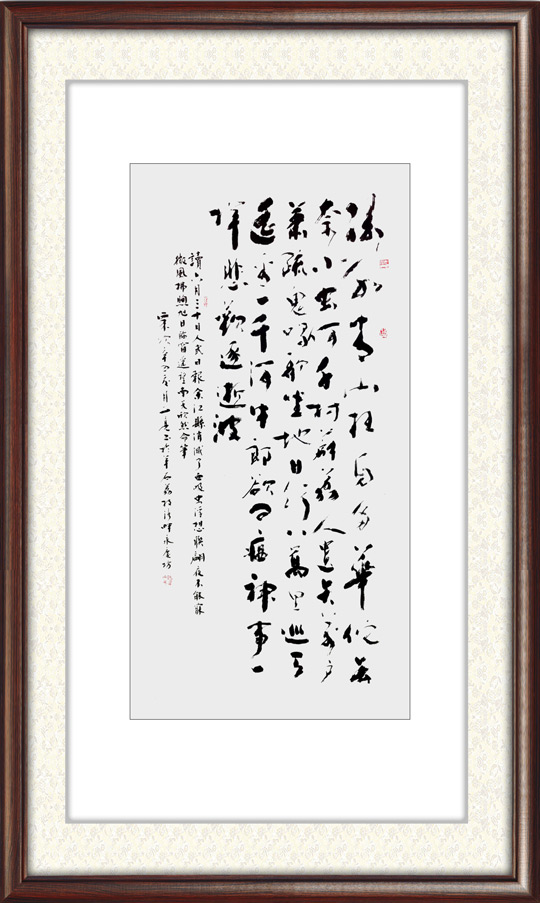 綠水青山枉自多華佗無
奈小虫何千村薜荔人遺矢萬户
蕭疏鬼唱歌坐地日行八萬里巡天
遥看一千河牛郎欲問瘟神事一
樣悲歡逐逝波
讀六月三十日人民日報余江縣消滅了血吸虫浮想聯翩夜不能寐
微風拂煦旭日臨窗遥望南天欣然命筆